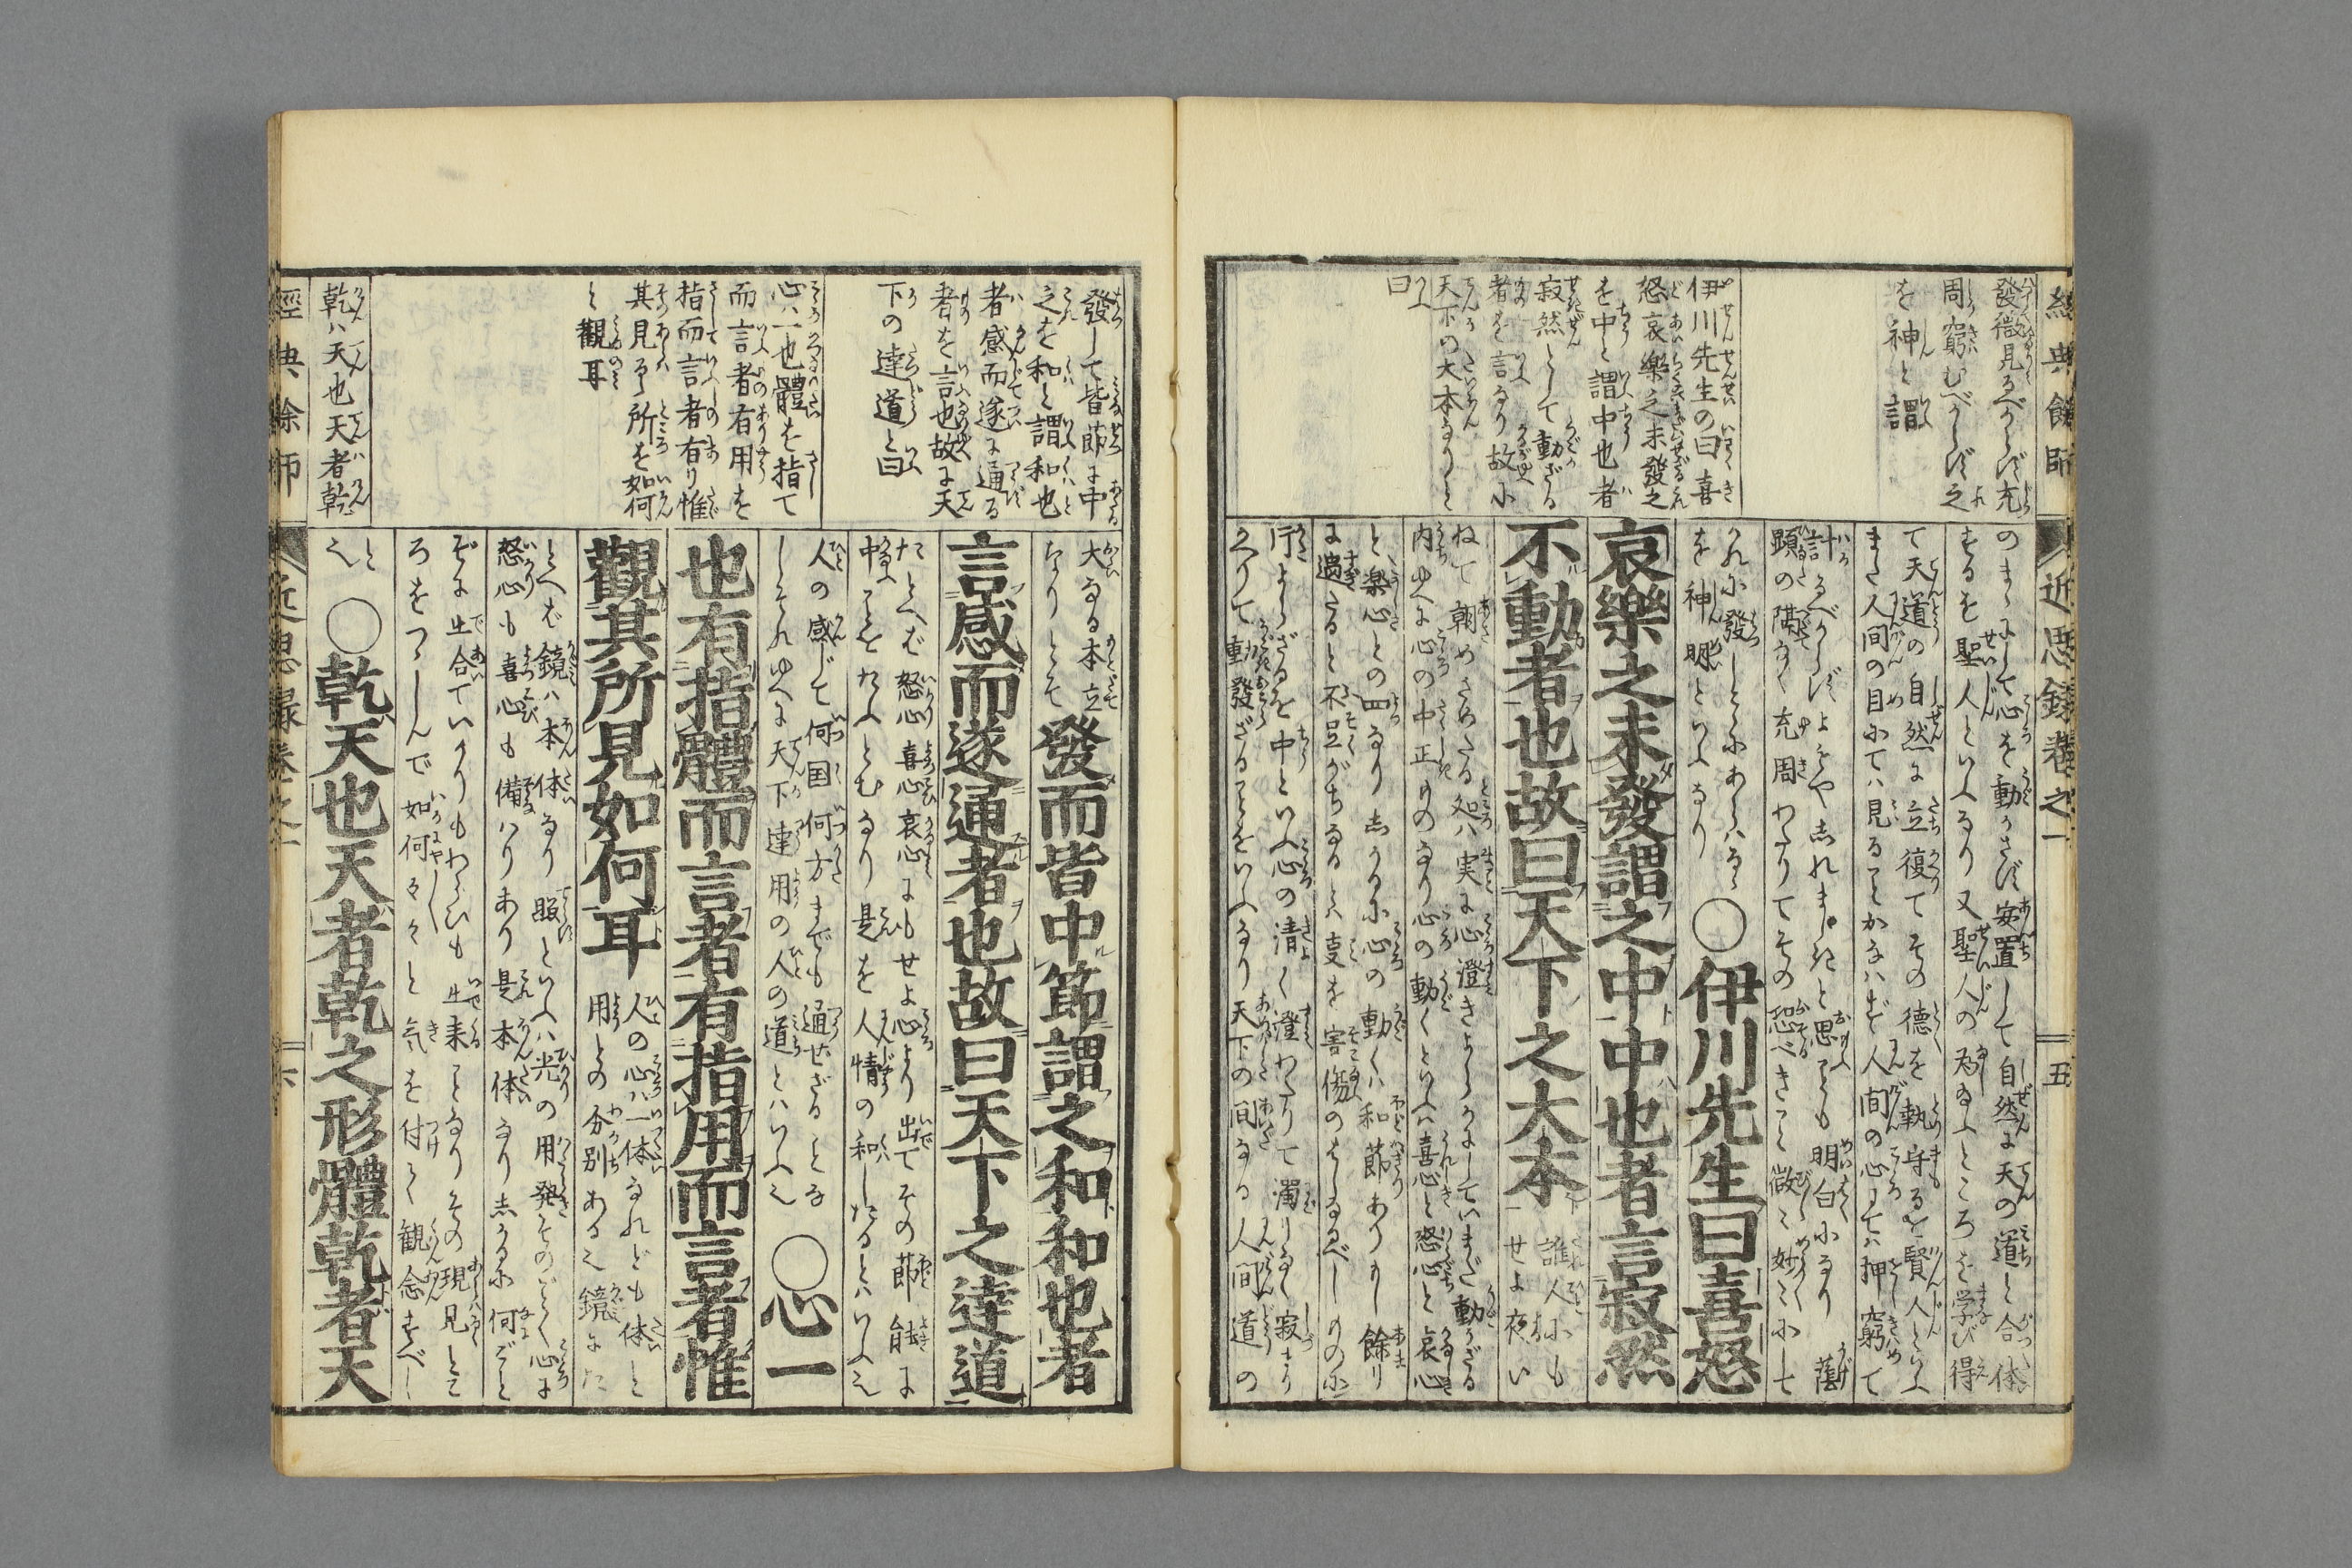 經典餘師
近思錄卷之一
五
發微見るべからず充
周窮むべからず之
を神と謂
伊川先生の曰喜
怒哀樂之未發之
を中と謂中也者
寂然として動ざる
者を言なり故に
天下の大本なりと
曰
のまゝにして心を動かさず安置して自然に天の道と合体
するを聖人といふなり又聖人の為ふところを学び得
て天道の自然に立復てその德を執守るを賢人といふ
また人間の目にては見ることかなはず人間の心にては押窮て
計るべからずよもや志れまじきと思ことも明白になり蔭
顕の隅なく充周わたりてその恐べきこと微ミ妙ミにして
かれに發しこゝにあらハるゝ
を神明といふなり
○伊川先生曰喜怒
哀樂之未發謂之中中也者言寂然
不動者也故曰天下之大本
誰人にも
せよ夜い
ねて朝めさめたる処ハ実に心澄きよらかにしていまだ動かざる
内ゆへに心の中正ものなり心の動くといへハ喜心と怒心と哀心
と楽心との四なり志かるに心の動くハ和節ありもし餘り
に過たると不足がちなるとハ支を害傷のもとゐなるべしものに
片よらざるを中といふ心の清く澄わたりて濁りなく寂まり
かへりて動發ざることをいふなり天下の間なる人間道の
發して皆節に中
之を和と謂和也
者感而遂に通る
者を言也故に天
下の達道と曰
心ハ一也體を指て
而言者有用を
指而言者有り惟
其見る所を如何
と觀耳
乾ハ天也天者乾
大なる本立
なりとぞ
發而皆中節謂之和和也者
言感而遂通者也故曰天下之達道
たとへば怒心喜心哀心にもせよ心より出てその節能に
中ことをたふとむなり是を人情の和したるとハいふ也
人の感じて何国何方までも通ぜざるとな
しそれゆへに天下達用の人の道とハいふ也
○心一
也有指體而言者有指用而言者惟
觀其所見如何耳
人の心ハ一体なれども体と
用との分別ある也鏡にた
とへば鏡ハ本体なり照といふハ光の用発そのごとく心に
怒心も喜心も備ハりあり是本体なり志かるに何ごと
ぞに出合ていかりもわらひも出来ことなりその現見とこ
ろをつゝしんで如何々々と気を付て観念すべし
と
也
○乾天也天者乾之形體乾者天
經典餘師
近思錄卷之一
六